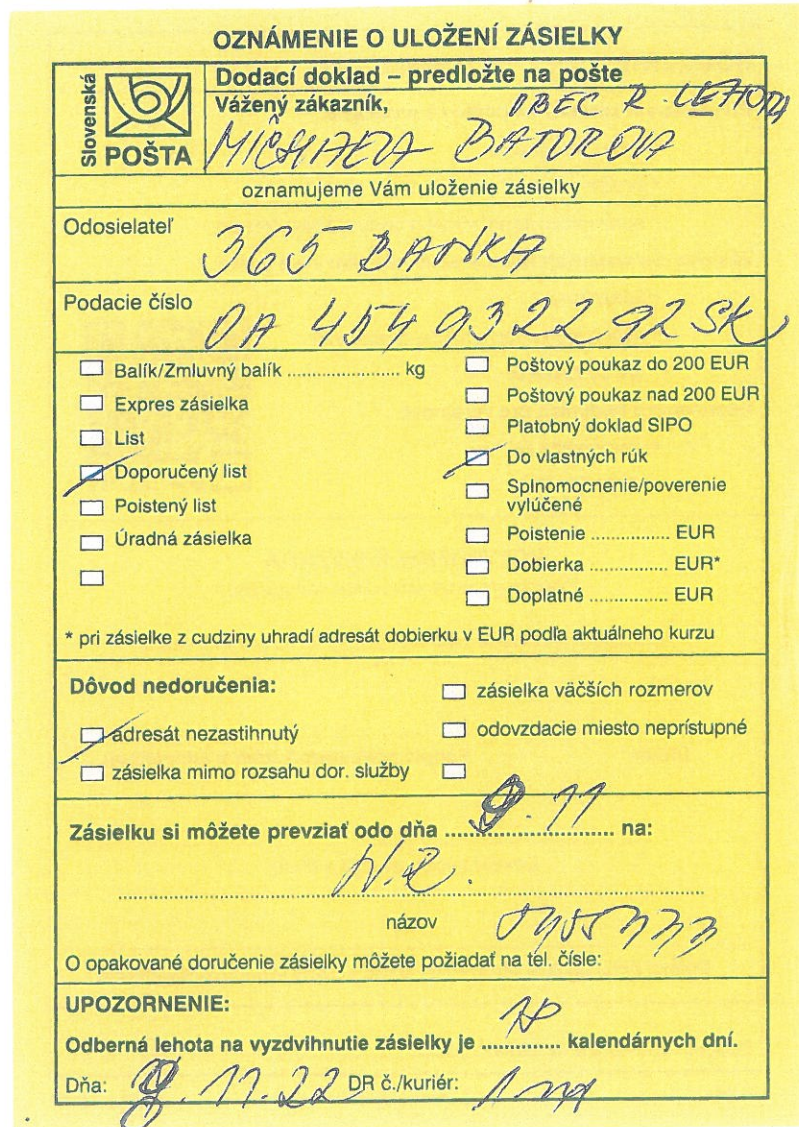 OZNÁMENIE O ULOŽENÍ ZÁSIELKY
Slovenská
POŠTA
Dodací doklad – predložte na pošte
Vážený zákazník, OBEC R. LEHOTA
BATOROVA
oznamujeme Vám uloženie zásielky
Odosielateľ
365 BANKA
Podacie číslo
454 932292 SK
Balík/Zmluvný balík ..................... kg
Expres zásielka
List
Doporučený list
Poistený list
Úradná zásielka
Poštový poukaz do 200 EUR
Poštový poukaz nad 200 EUR
Platobný doklad SIPO
Do vlastných rúk
Splnomocnenie/poverenie
vylúčené
Poistenie ............... EUR
Dobierka ............... EUR*
Doplatné ............... EUR
* pri zásielke z cudziny uhradí adresát dobierku v EUR podľa aktuálneho kurzu
Dôvod nedoručenia:
adresát nezastihnutý
zásielka mimo rozsahu dor. služby
zásielka väčších rozmerov
odovzdacie miesto neprístupné
Zásielku si môžete prevziať odo dňa 9.11 na:
názov
O opakované doručenie zásielky môžete požiadať na tel. čísle:
UPOZORNENIE:
Odberná lehota na vyzdvihnutie zásielky je .............. kalendárnych dní.
Dňa: 11.22 DR č./kuriér: